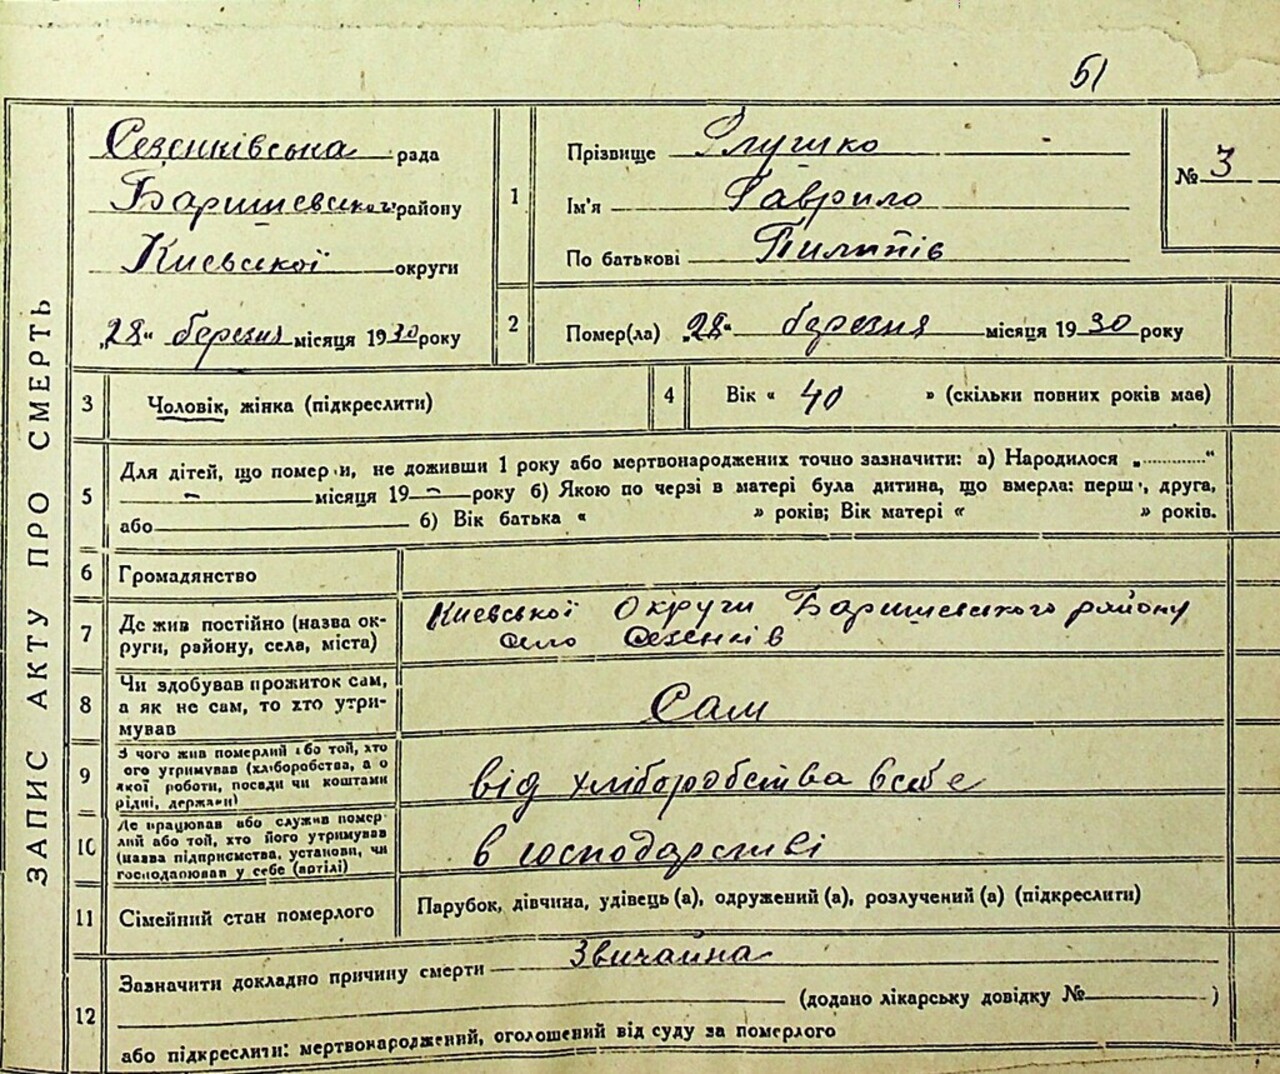 51
ЗАПИС АКТУ ПРО СМЕРТЬ
Сезенківська рада
Баришевського району
Киевської округи
„28“ березня місяця 1930 року
1
Прізвище Глушко
Ім'я Гаврило
По батькові Пилипів
№ 3
2
Помер(ла) „28“ березня місяця 1930 року
3
Чоловік, жінка (підкреслити)
4
Вік « 40 » (скільки повних років мав)
5
Для дітей, що померли, не доживши 1 року або мертвонароджених точно зазначити: а) Народилося „..........“
місяця 19 року б) Якою по черзі в матері була дитина, що вмерла: перша, друга,
або б) Вік батька « » років; Вік матері « » років.
6
Громадянство
7
Де жив постійно (назва ок-
руги, району, села, міста)
Киевської Округи Баришевского району
село Сезенків
8
Чи здобував прожиток сам,
а як не сам, то хто утри-
мував
Сам
9
З чого жив померлий або той, хто
ого утримував (хліборобства, а о
якої роботи, посади чи коштами
рідні, держави)
від хліборобства в себе
10
Де працював або служив помер-
лий або той, хто його утримував
(назва підприємства, установи, чи
господарював у себе (артілі)
в господарстві
11
Сімейний стан померлого
Парубок, дівчина, удівець (а), одружений (а), розлучений (а) (підкреслити)
12
Зазначити докладно причину смерти Звичайна
(додано лікарську довідку № )
або підкреслити: мертвонароджений, оголошений від суду за померлого